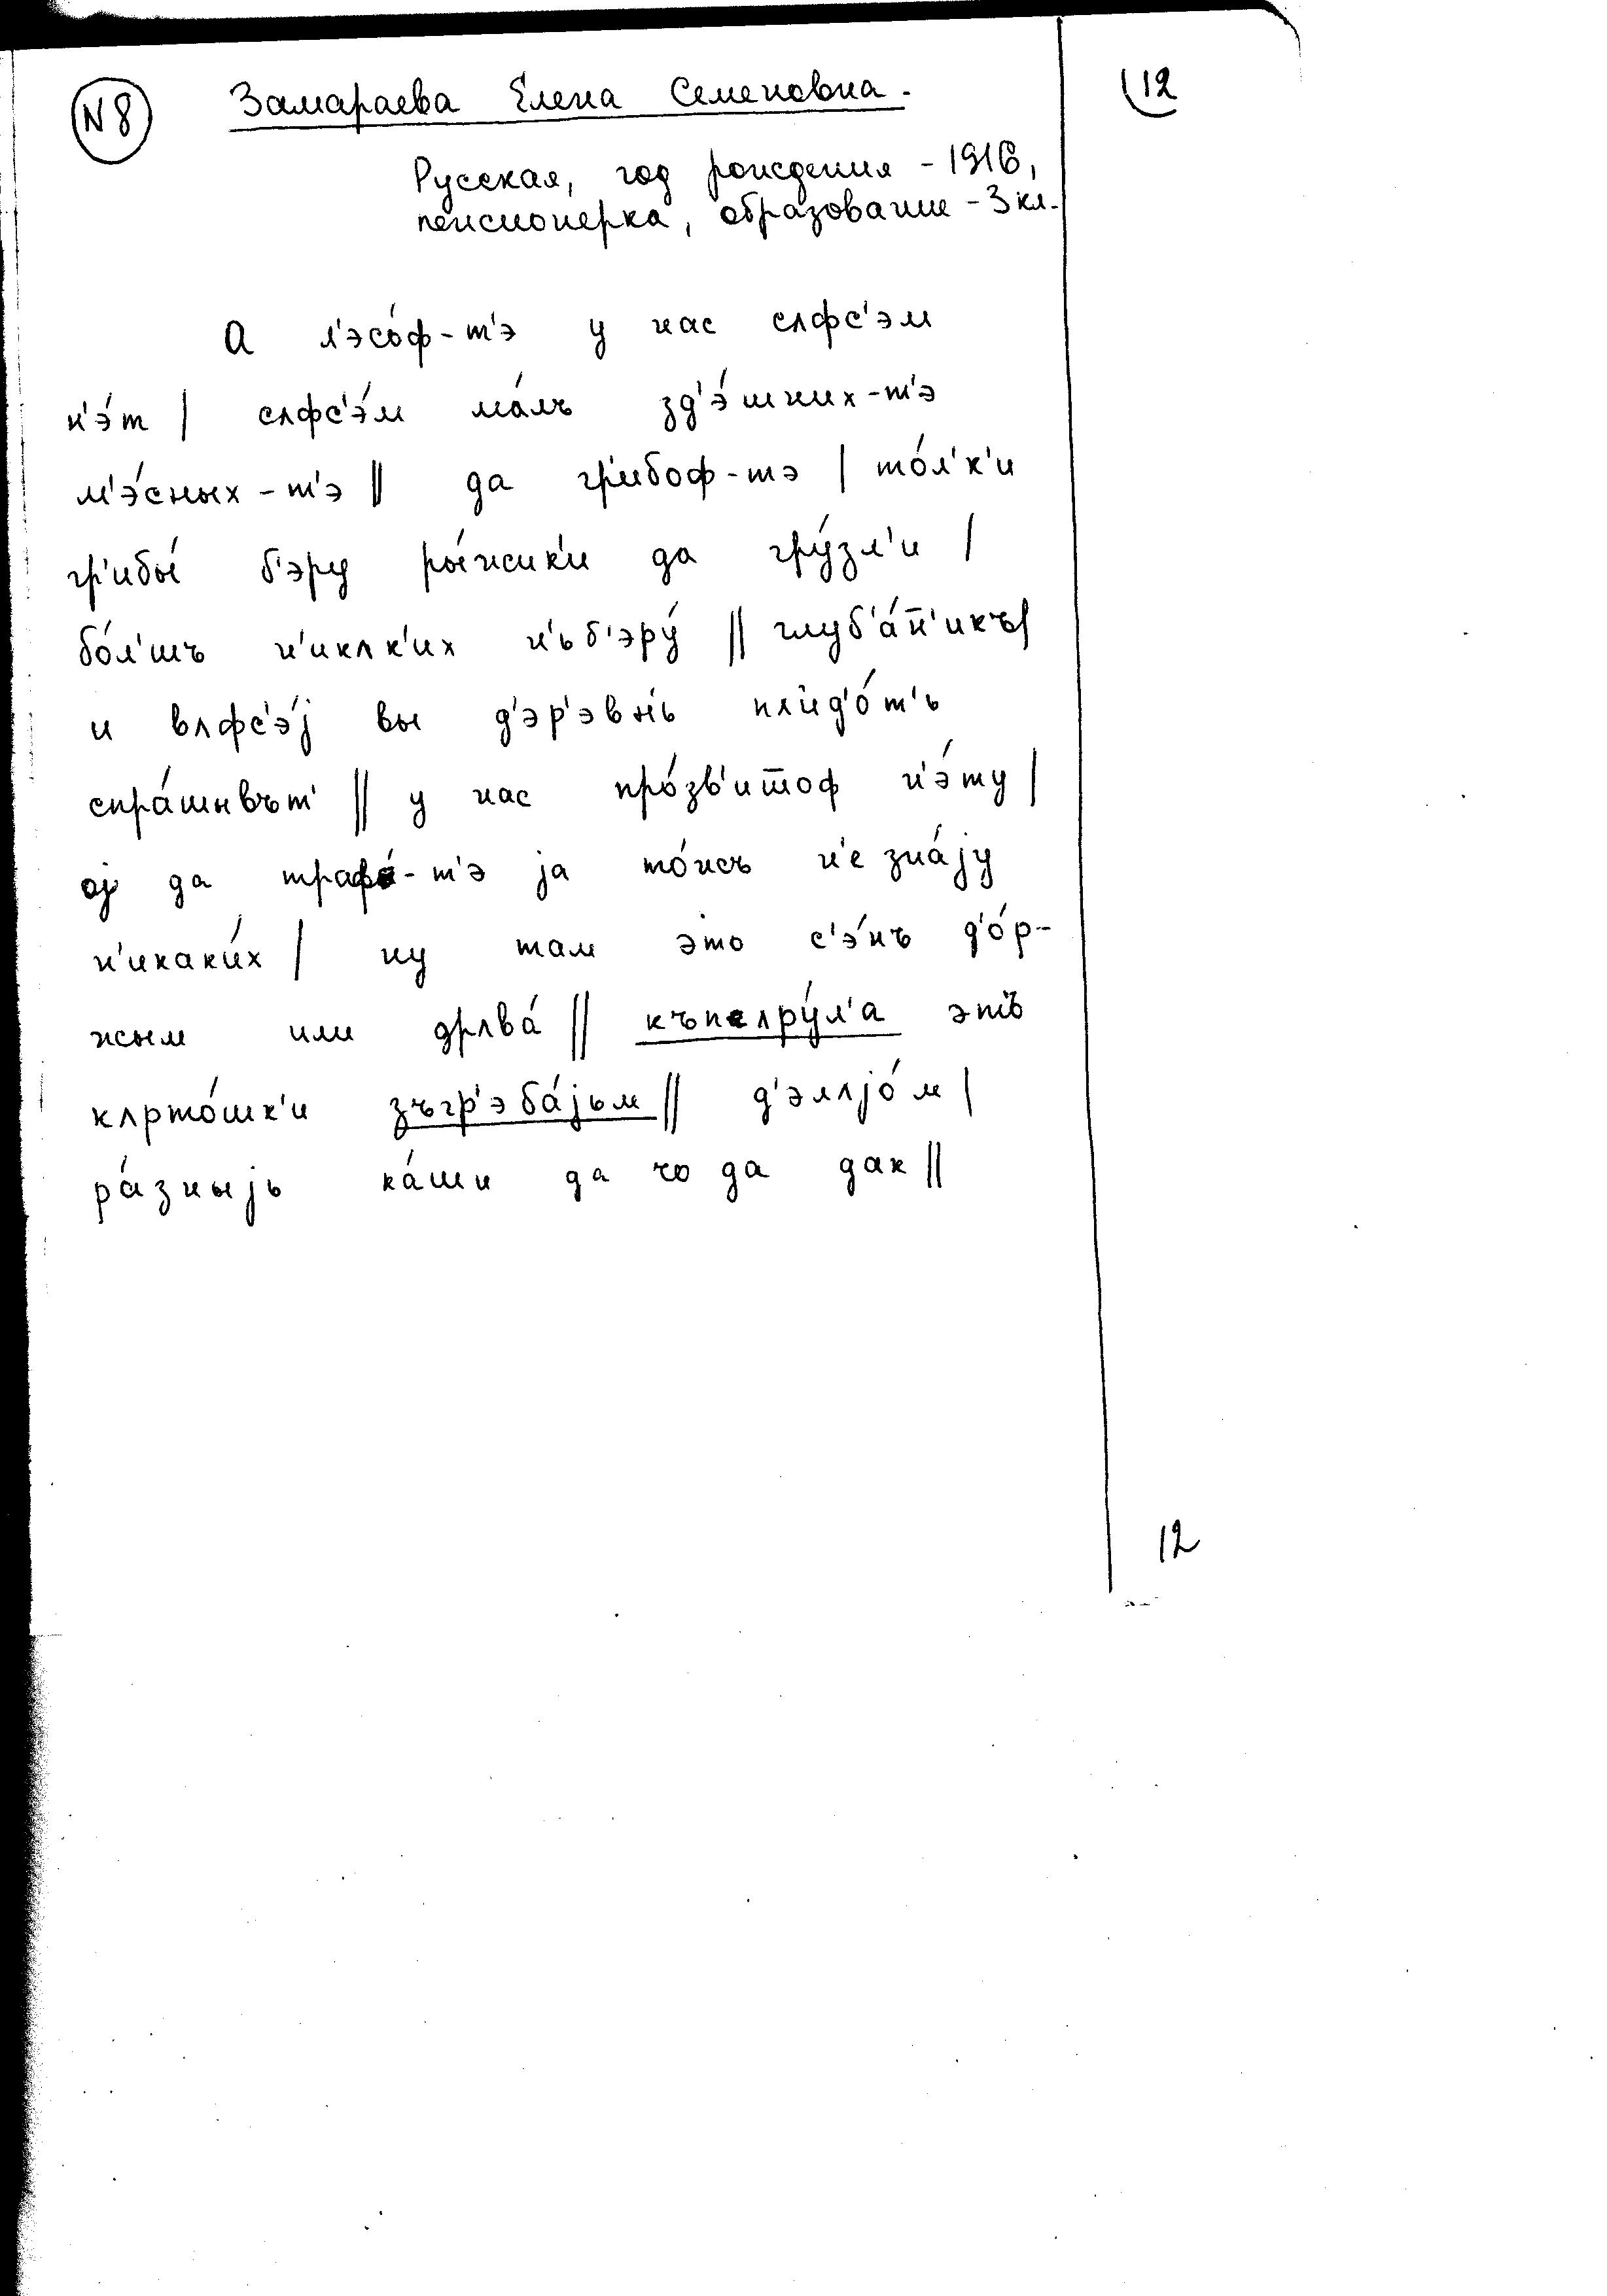 N8 Замараева Елена Семеновна. 12
Русская, год рождения - 1916,
пенсионерка, образование - 3 кл.
А л'эсо́ф-т'э у нас сʌфс'эм
н'э́т | сʌфс'э́м ма́лъ зд'э́шних-т'э
м'э́сных-т'э || да гр'ибоф-тэ | то́л'к'и
гр'ибы́ б'эру ры́жик'и да гру́зл'и |
бо́л'шъ н'икʌк'их н'ьб'эру́ || глуб'а́н̄'икъ|
и вʌфс'э́j вы д'эр'э́вн'ь пʌйд'о́т'ь
спра́шывът' || у нас про́зв'ит̄оф н'э́ту |
оj да трафа́-т'э jа то́жъ н'е зна́jу
н'икаки́х | ну там э́то с'э́нъ д'о́р-
жым или дрʌва́ || къпʌру́л'а этъ
кʌрто́шк'и зъгр'эба́jьм || д'эʌлjо́м |
ра́зныjь ка́ши да чо да дак ||
12